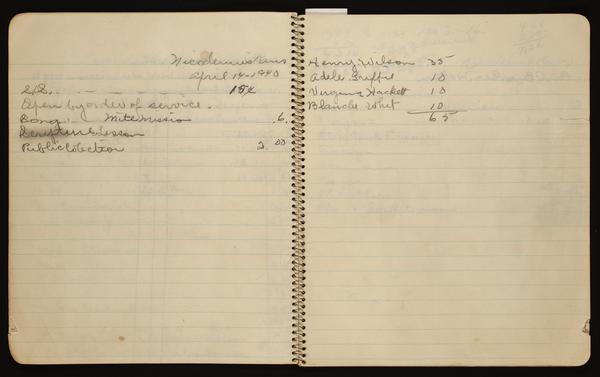 Nicodemus Kans
April 14-1940
S.S. - - - - - 15¢
Open by order of service.
Song :- Mite Mission .6.
Scripture Lesson
Public Collection 2.00
Henry Wilson 35
Adele Griffie 10
Virginia Hackett 10
Blanche Whit 10
65